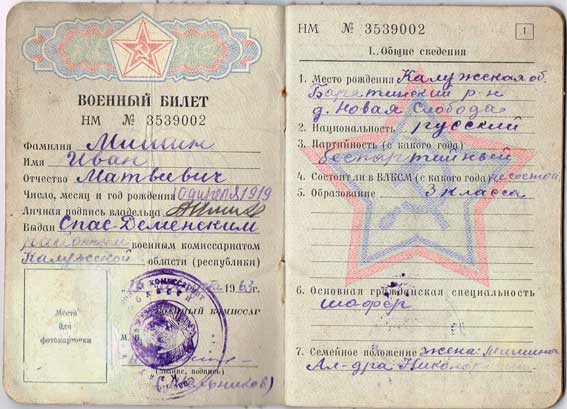 ВОЕННЫЙ БИЛЕТ
НМ № 3539002
Фамилия Мишин
Имя Иван
Отчество Матвеевич
Число, месяц и год рождения 10 апреля 1919
Личная подпись владельца
Выдан Спас-Деменским
районным военным комиссариатом
Калужской области (республики)
1963г.
Военный комиссар
М. П.
(звание, подпись)
Место
для
фотокарточки
НМ № 3539002
1
I. Общие сведения
1. Место рождения Калужская об.
Барятинский р-н
д. Новая Слобода
2. Национальность русский
3. Партийность (с какого года)
беспартийный
4. Состоит ли в ВЛКСМ (с какого года) не состоит
5. Образование 3 класса
6. Основная гражданская специальность
шофер
7. Семейное положение жена: Мишина
Ал-дра